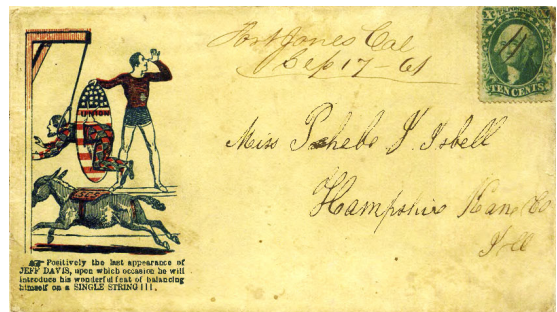 Fort Jones Cal
Sep 17 - 61
TEN CENTS
UNION
Miss Phebe Y. Isbell
Hampshire Kane Co
Ill
Positively the last appearance of
JEFF DAVIS, upon which occasion he will
introduce his wonderful feat of balancing
himself on a SINGLE STRING!!!.